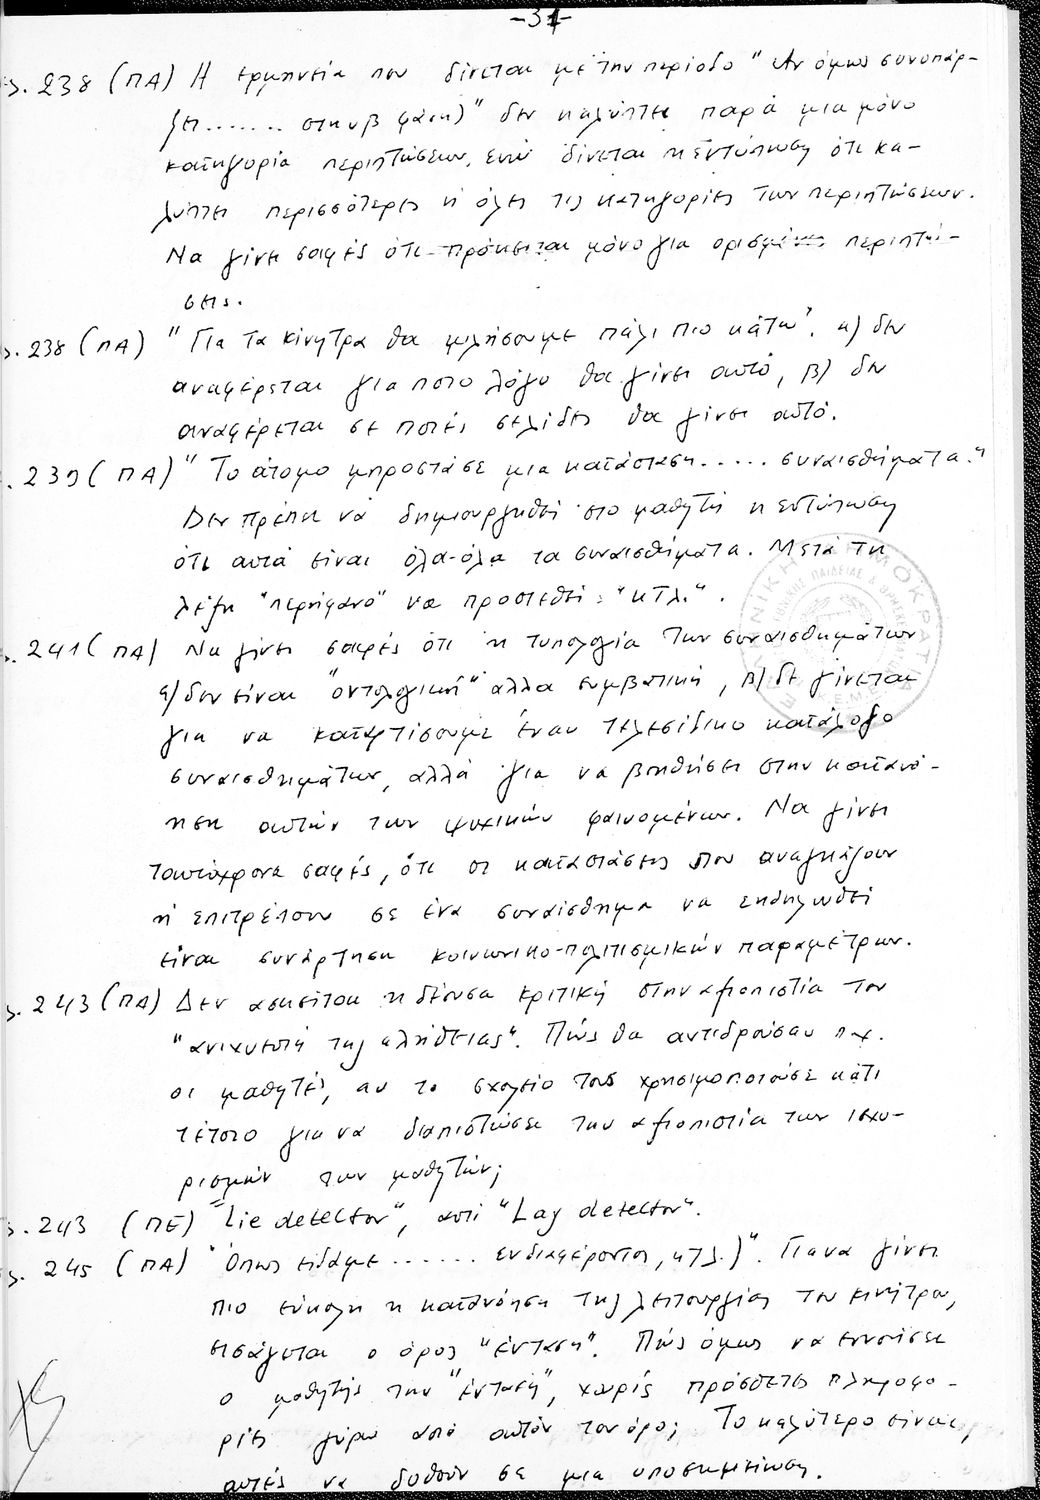 -31-
σ. 238 (ΠΑ) Η ερμηνεία που δίνεται με την περίοδο "Αν όμως συνυπάρ-
ξει....... στην β φάση)" δεν καλύπτει παρά μια μόνο
κατηγορία περιπτώσεων, ενώ δίνεται η εντύπωση ότι κα-
λύπτει περισσότερες ή όλες τις κατηγορίες των περιπτώσεων.
Να γίνει σαφές ότι πρόκειται μόνο για ορισμένες περιπτώ-
σεις.
σ. 238 (ΠΑ) "Για τα κίνητρα θα μιλήσουμε πάλι πιο κάτω". α) δεν
αναφέρεται για ποιο λόγο θα γίνει αυτό, β) δεν
αναφέρεται σε ποιές σελίδες θα γίνει αυτό.
σ. 239 (ΠΑ) "Το άτομο μπροστά σε μια κατάσταση..... συναισθήματα."
Δεν πρέπει να δημιουργηθεί στο μαθητή η εντύπωση
ότι αυτά είναι όλα-όλα τα συναισθήματα. Μετά τη
λέξη "περήφανο" να προστεθεί: "κτλ.".
σ. 241 (ΠΑ) Να γίνει σαφές ότι η τυπολογία των συναισθημάτων
α) δεν είναι "οντολογική" αλλά συμβατική, β) δε γίνεται
για να καταρτίσουμε έναν τελεσίδικο κατάλογο
συναισθημάτων, αλλά για να βοηθήσει στην κατανό-
ηση αυτών των ψυχικών φαινομένων. Να γίνει
ταυτόχρονα σαφές, ότι οι καταστάσεις που αναγκάζουν
ή επιτρέπουν σε ένα συναίσθημα να εκδηλωθεί
είναι συνάρτηση κοινωνικο-πολιτισμικών παραμέτρων.
σ. 243 (ΠΑ) Δεν ασκείται η δέουσα κριτική στην αξιοπιστία του
"ανιχνευτή της αλήθειας". Πώς θα αντιδρούσαν π.χ.
οι μαθητές, αν το σχολείο τους χρησιμοποιούσε κάτι
τέτοιο για να διαπιστώσει την αξιοπιστία των ισχυ-
ρισμών των μαθητών;
σ. 243 (ΠΕ) "Lie detector", αντί "Lay detector".
σ. 245 (ΠΑ) "Όπως είδαμε ....... ενδιαφέροντος, κτλ.)". Για να γίνει
πιο εύκολη η κατανόηση της λειτουργίας του κινήτρου,
εισάγεται ο όρος "ένταση". Πώς όμως να εννοήσει
ο μαθητής την "ένταση", χωρίς πρόσθετες πληροφο-
ρίες γύρω από αυτόν τον όρο; Το καλύτερο είναι,
αυτές να δοθούν σε μια υποσημείωση.